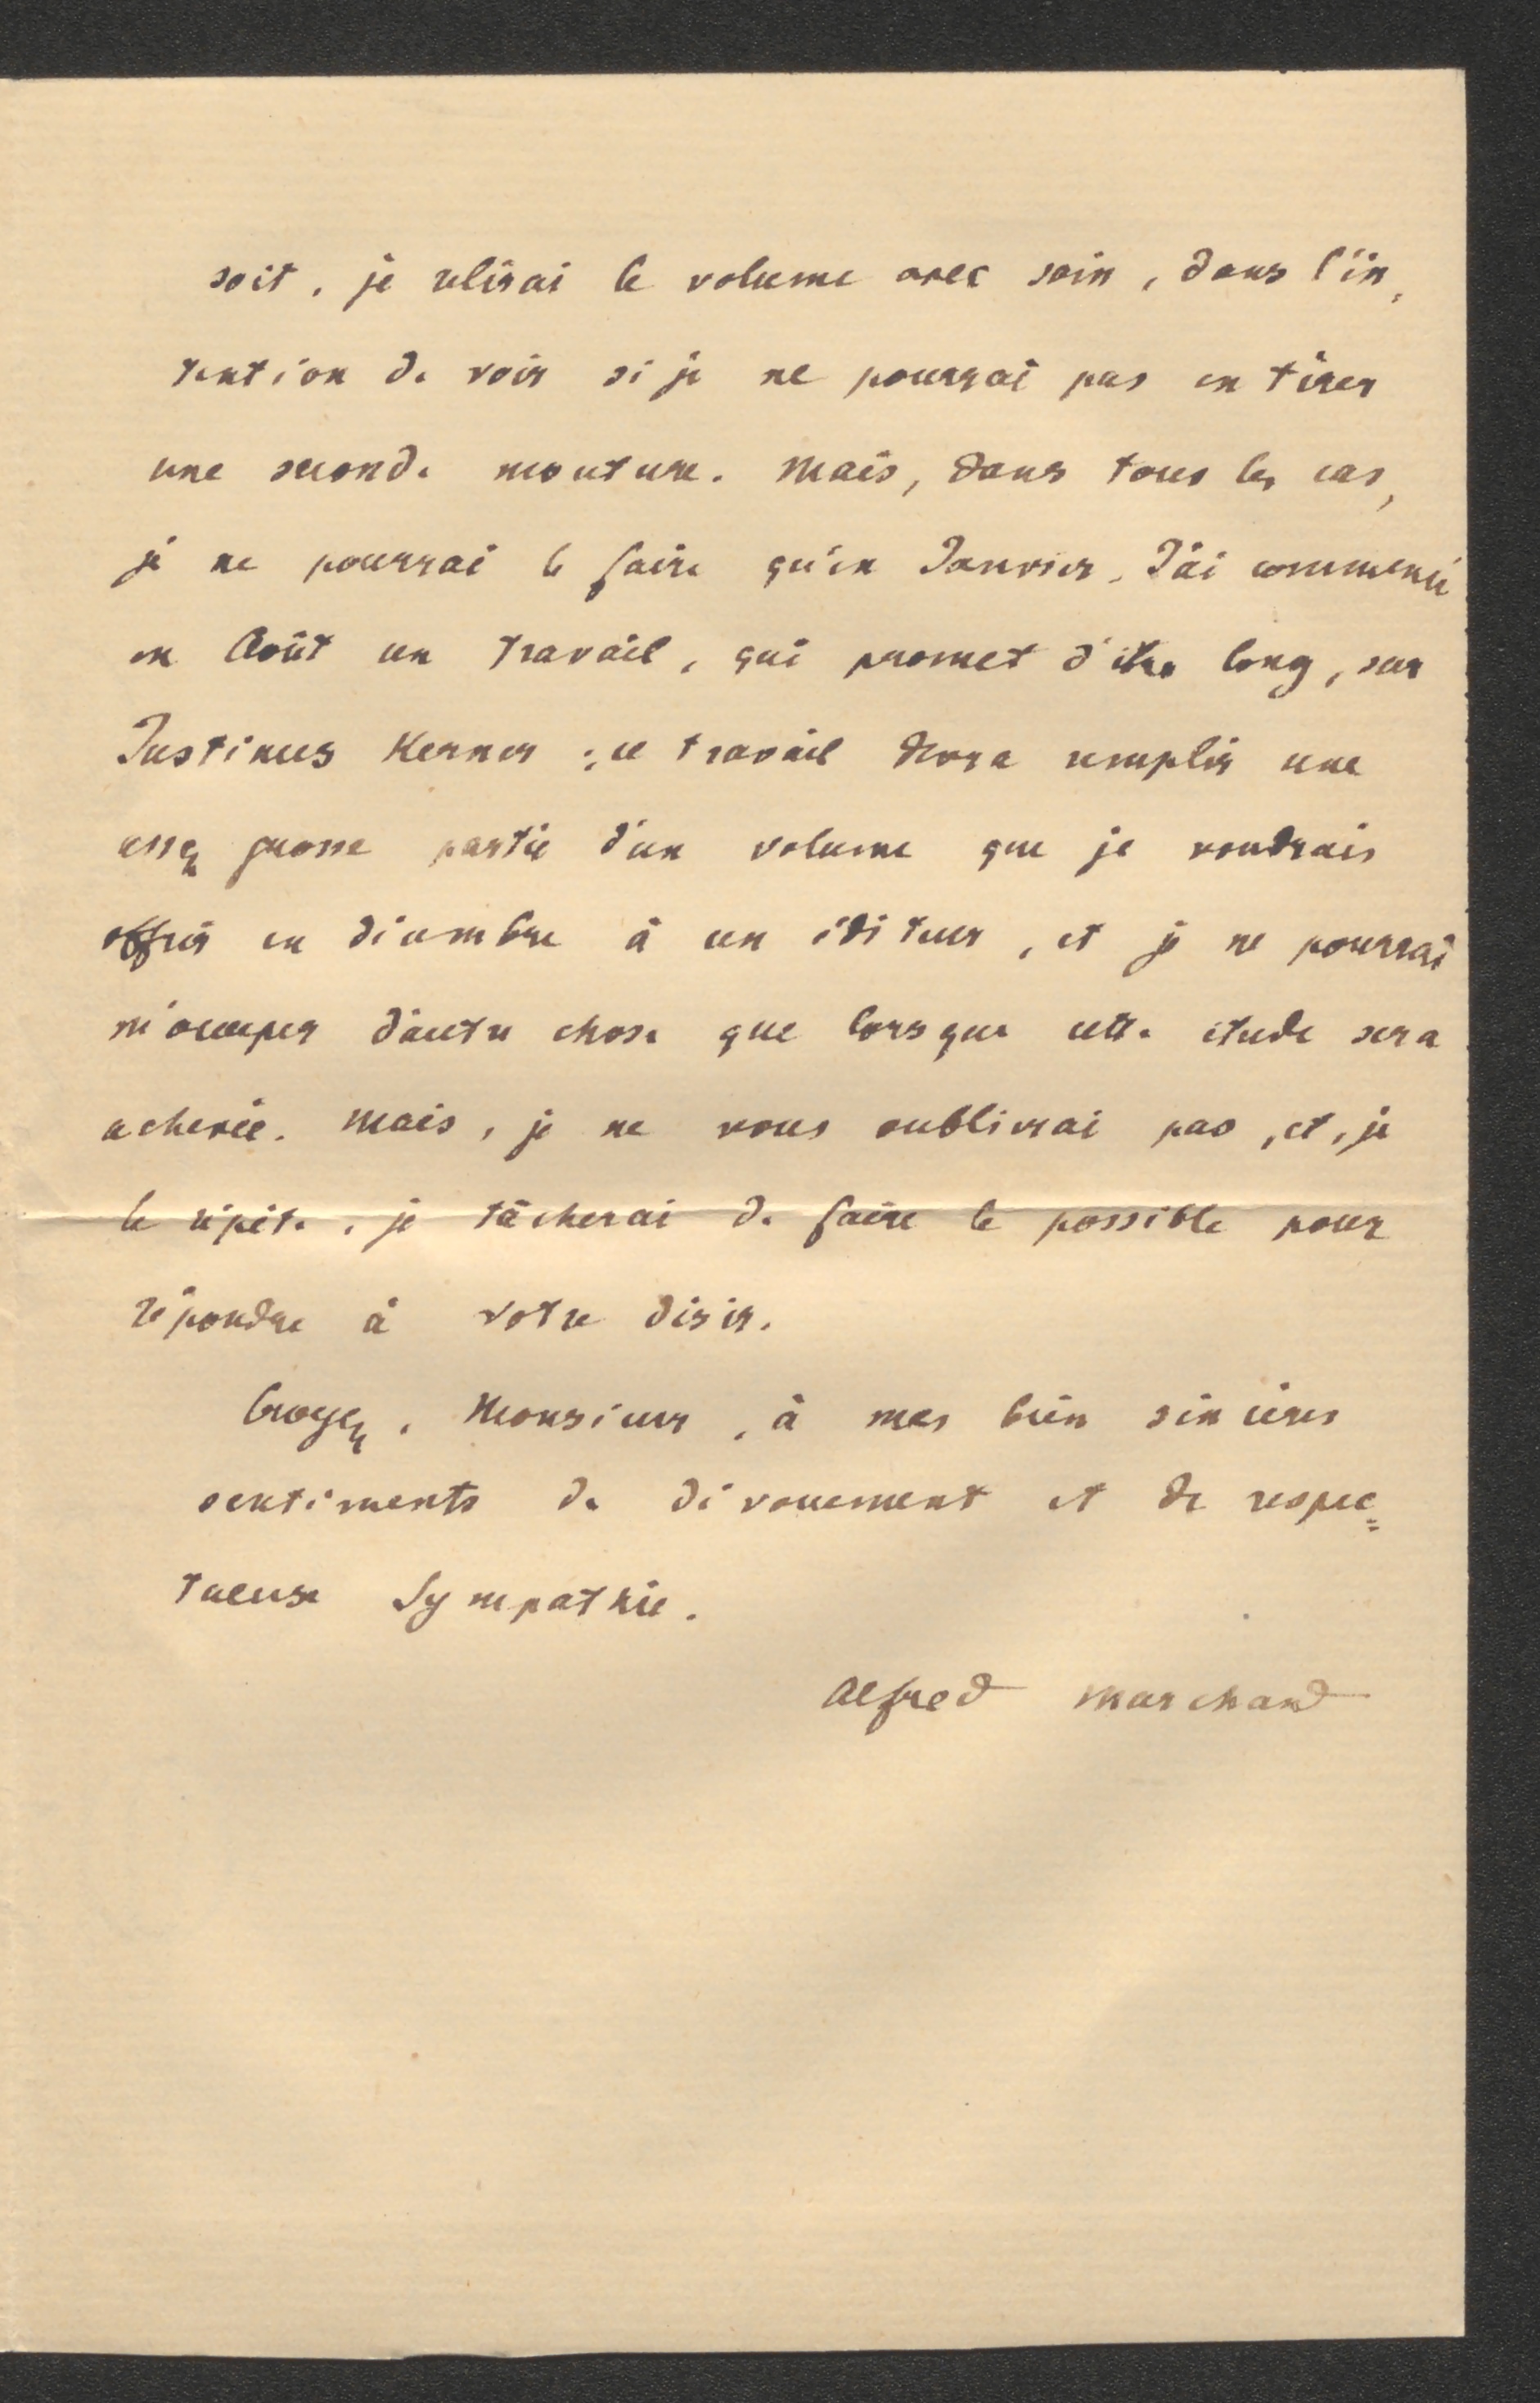 soit, je relirai le volume avec soin, dans l'in-
tention de voir si je ne pourrai pas en tirer
une seconde mouture. Mais, dans tous les cas,
je ne pourrai le faire qu'en Janvier. J'ai commencé
en Août un travail, qui promet d'être long, sur
Justinus Kerner ; ce travail devra remplir une
assez grosse partie d'un volume que je voudrais
offrir en décembre à un éditeur, et je ne pourrai
m'occuper d'autre chose que lorsque cette étude sera
achevée. Mais, je ne vous oublierai pas, et, je
le répète, je tâcherai de faire le possible pour
répondre à votre désir.
Croyez, Monsieur, à mes bien sincères
sentiments de dévouement et de respec=
tueuse sympathie.
Alfred Marchand